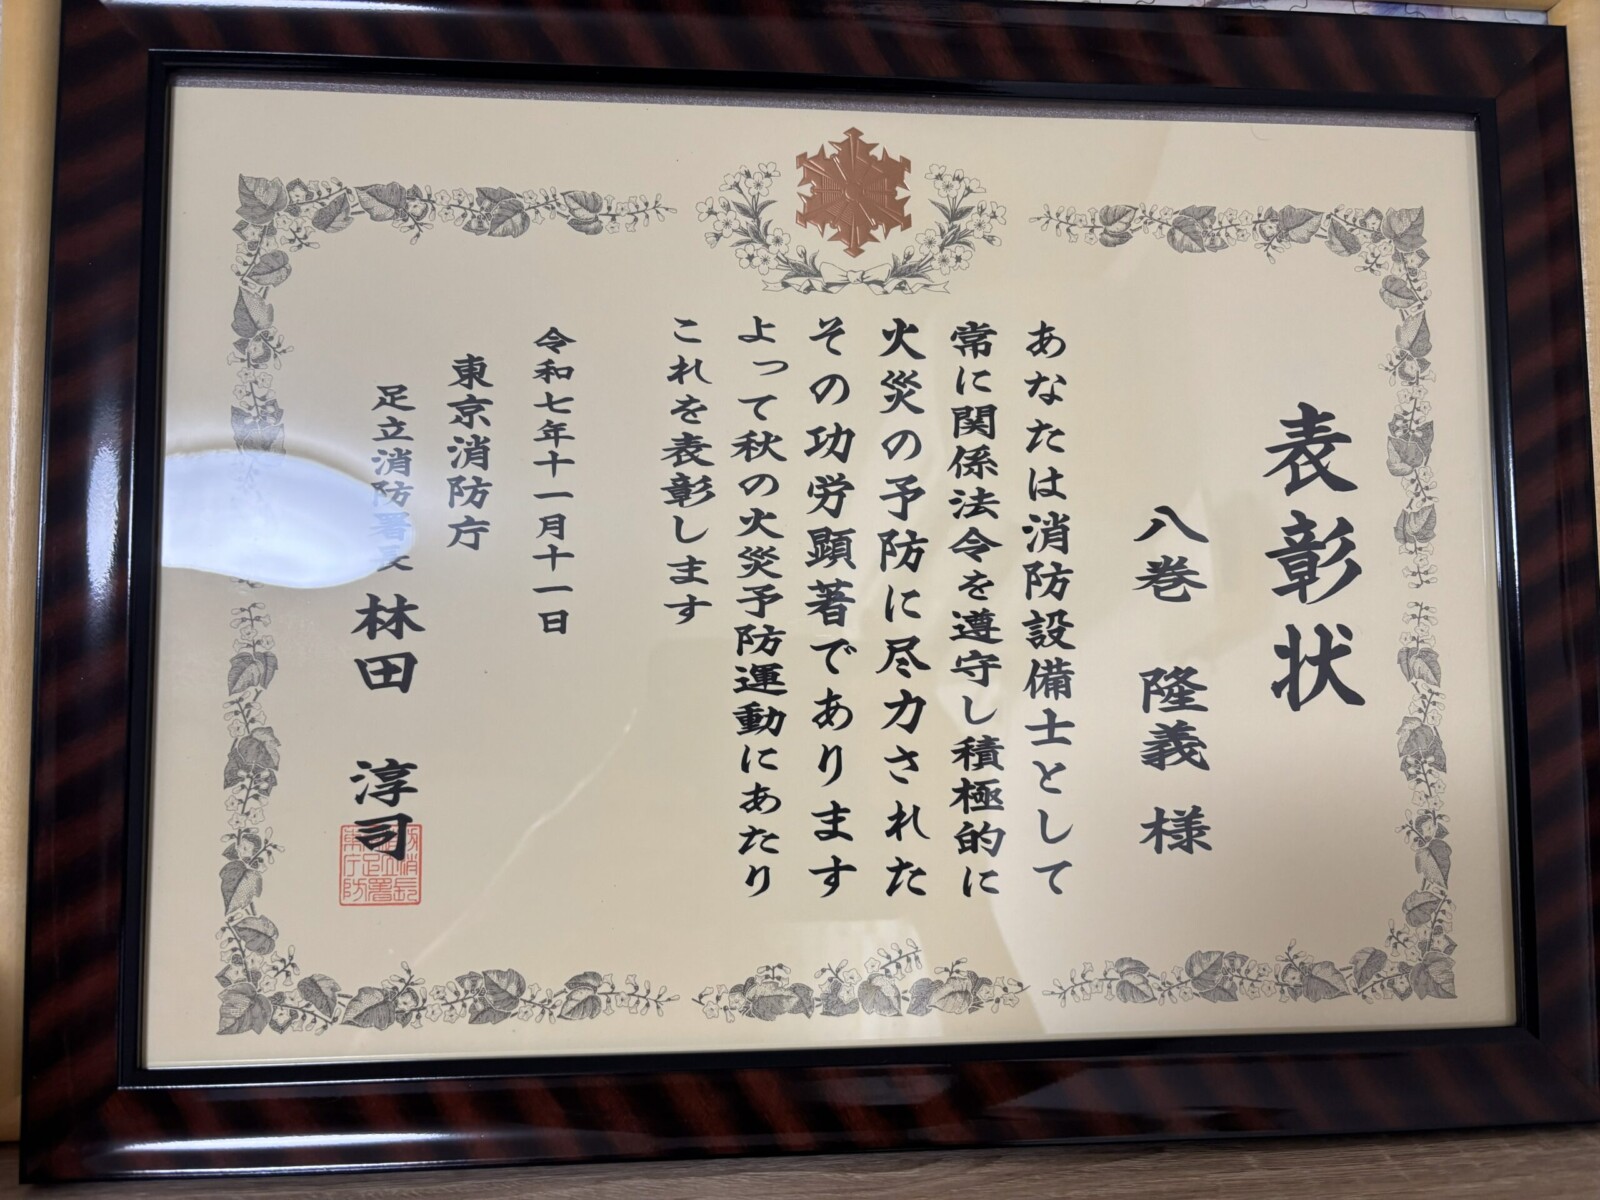 表彰状
八巻 隆義 様
あなたは消防設備士として
常に関係法令を遵守し積極的に
火災の予防に尽力された
その功労顕著であります
よって秋の火災予防運動にあたり
これを表彰します
令和七年十一月十一日
東京消防庁
足立消防署長 林田 淳司